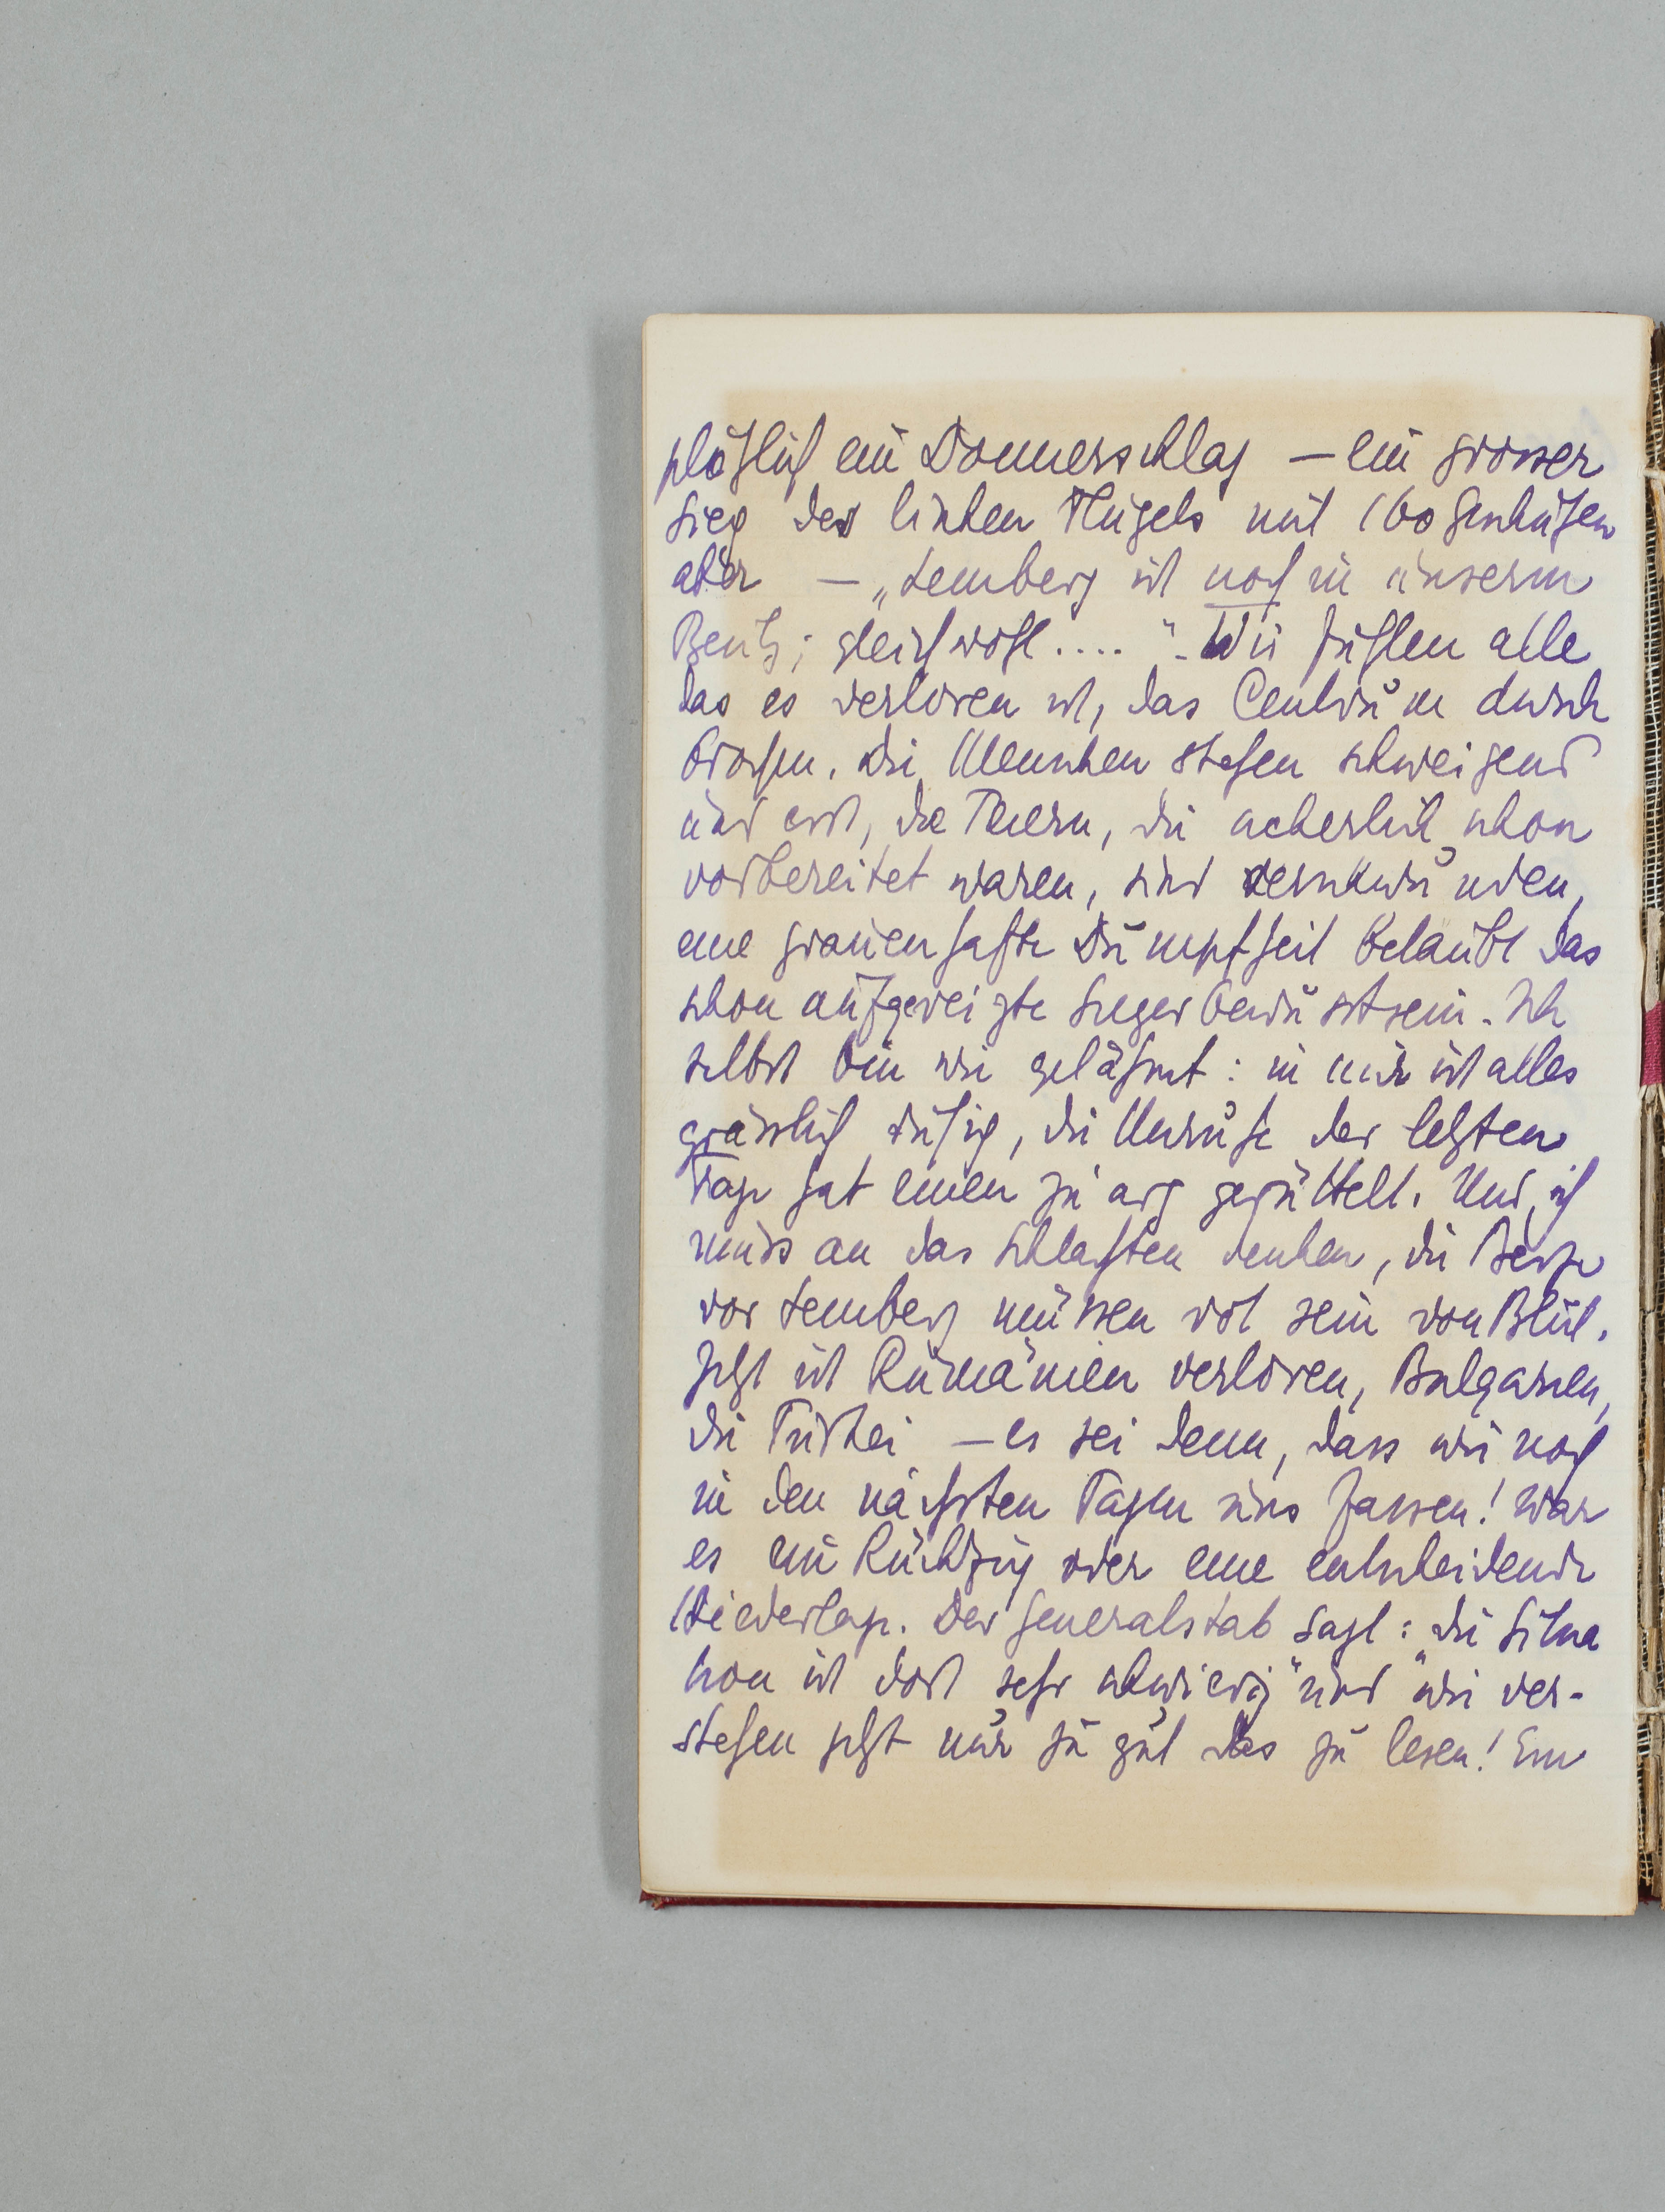 plötzlich ein Donnerschlag – ein grosser
Sieg des linken Flügels mit 160 Geschützen
aber – „Lemberg ist noch in unserm
Besitz; gleichwohl...." – Wir fühlen alle
das es verloren ist, das Centrum durch
brochen. Die Menschen stehen schweigend
und ernst, die Feiern, die ächerlich schon
vorbereitet waren, sind verschwunden,
eine grauenhafte Dumpfheit belaubt das
schon aufgereizte Siegesbewusstsein. Ich
selbst bin wie gelähmt: in mir ist alles
grässlich ruhig, die Unruhe der letzten
Tage hat einen zu arg gerüttelt. Und ich
muss an das Schlachten denken, die Berge
vor Lemberg müssen rot sein von Blut.
Jetzt ist Rumänien verloren, Bulgarien,
die Türkei – es sei denn, dass wir noch
in den nächsten Tagen uns fassen! War
es ein Rückzug oder eine entscheidende
Niederlage. Der Generalstab sagt: „die Situa
tion ist dort sehr schwierig" und wir ver-
stehen jetzt nur zu gut das zu lesen! Ein